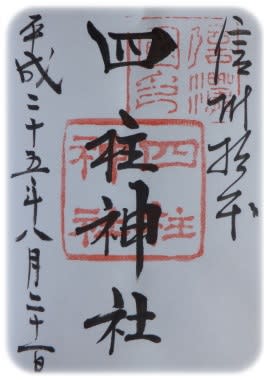 信州松本
四柱神社
平成二十五年八月二十一日
四柱
神社